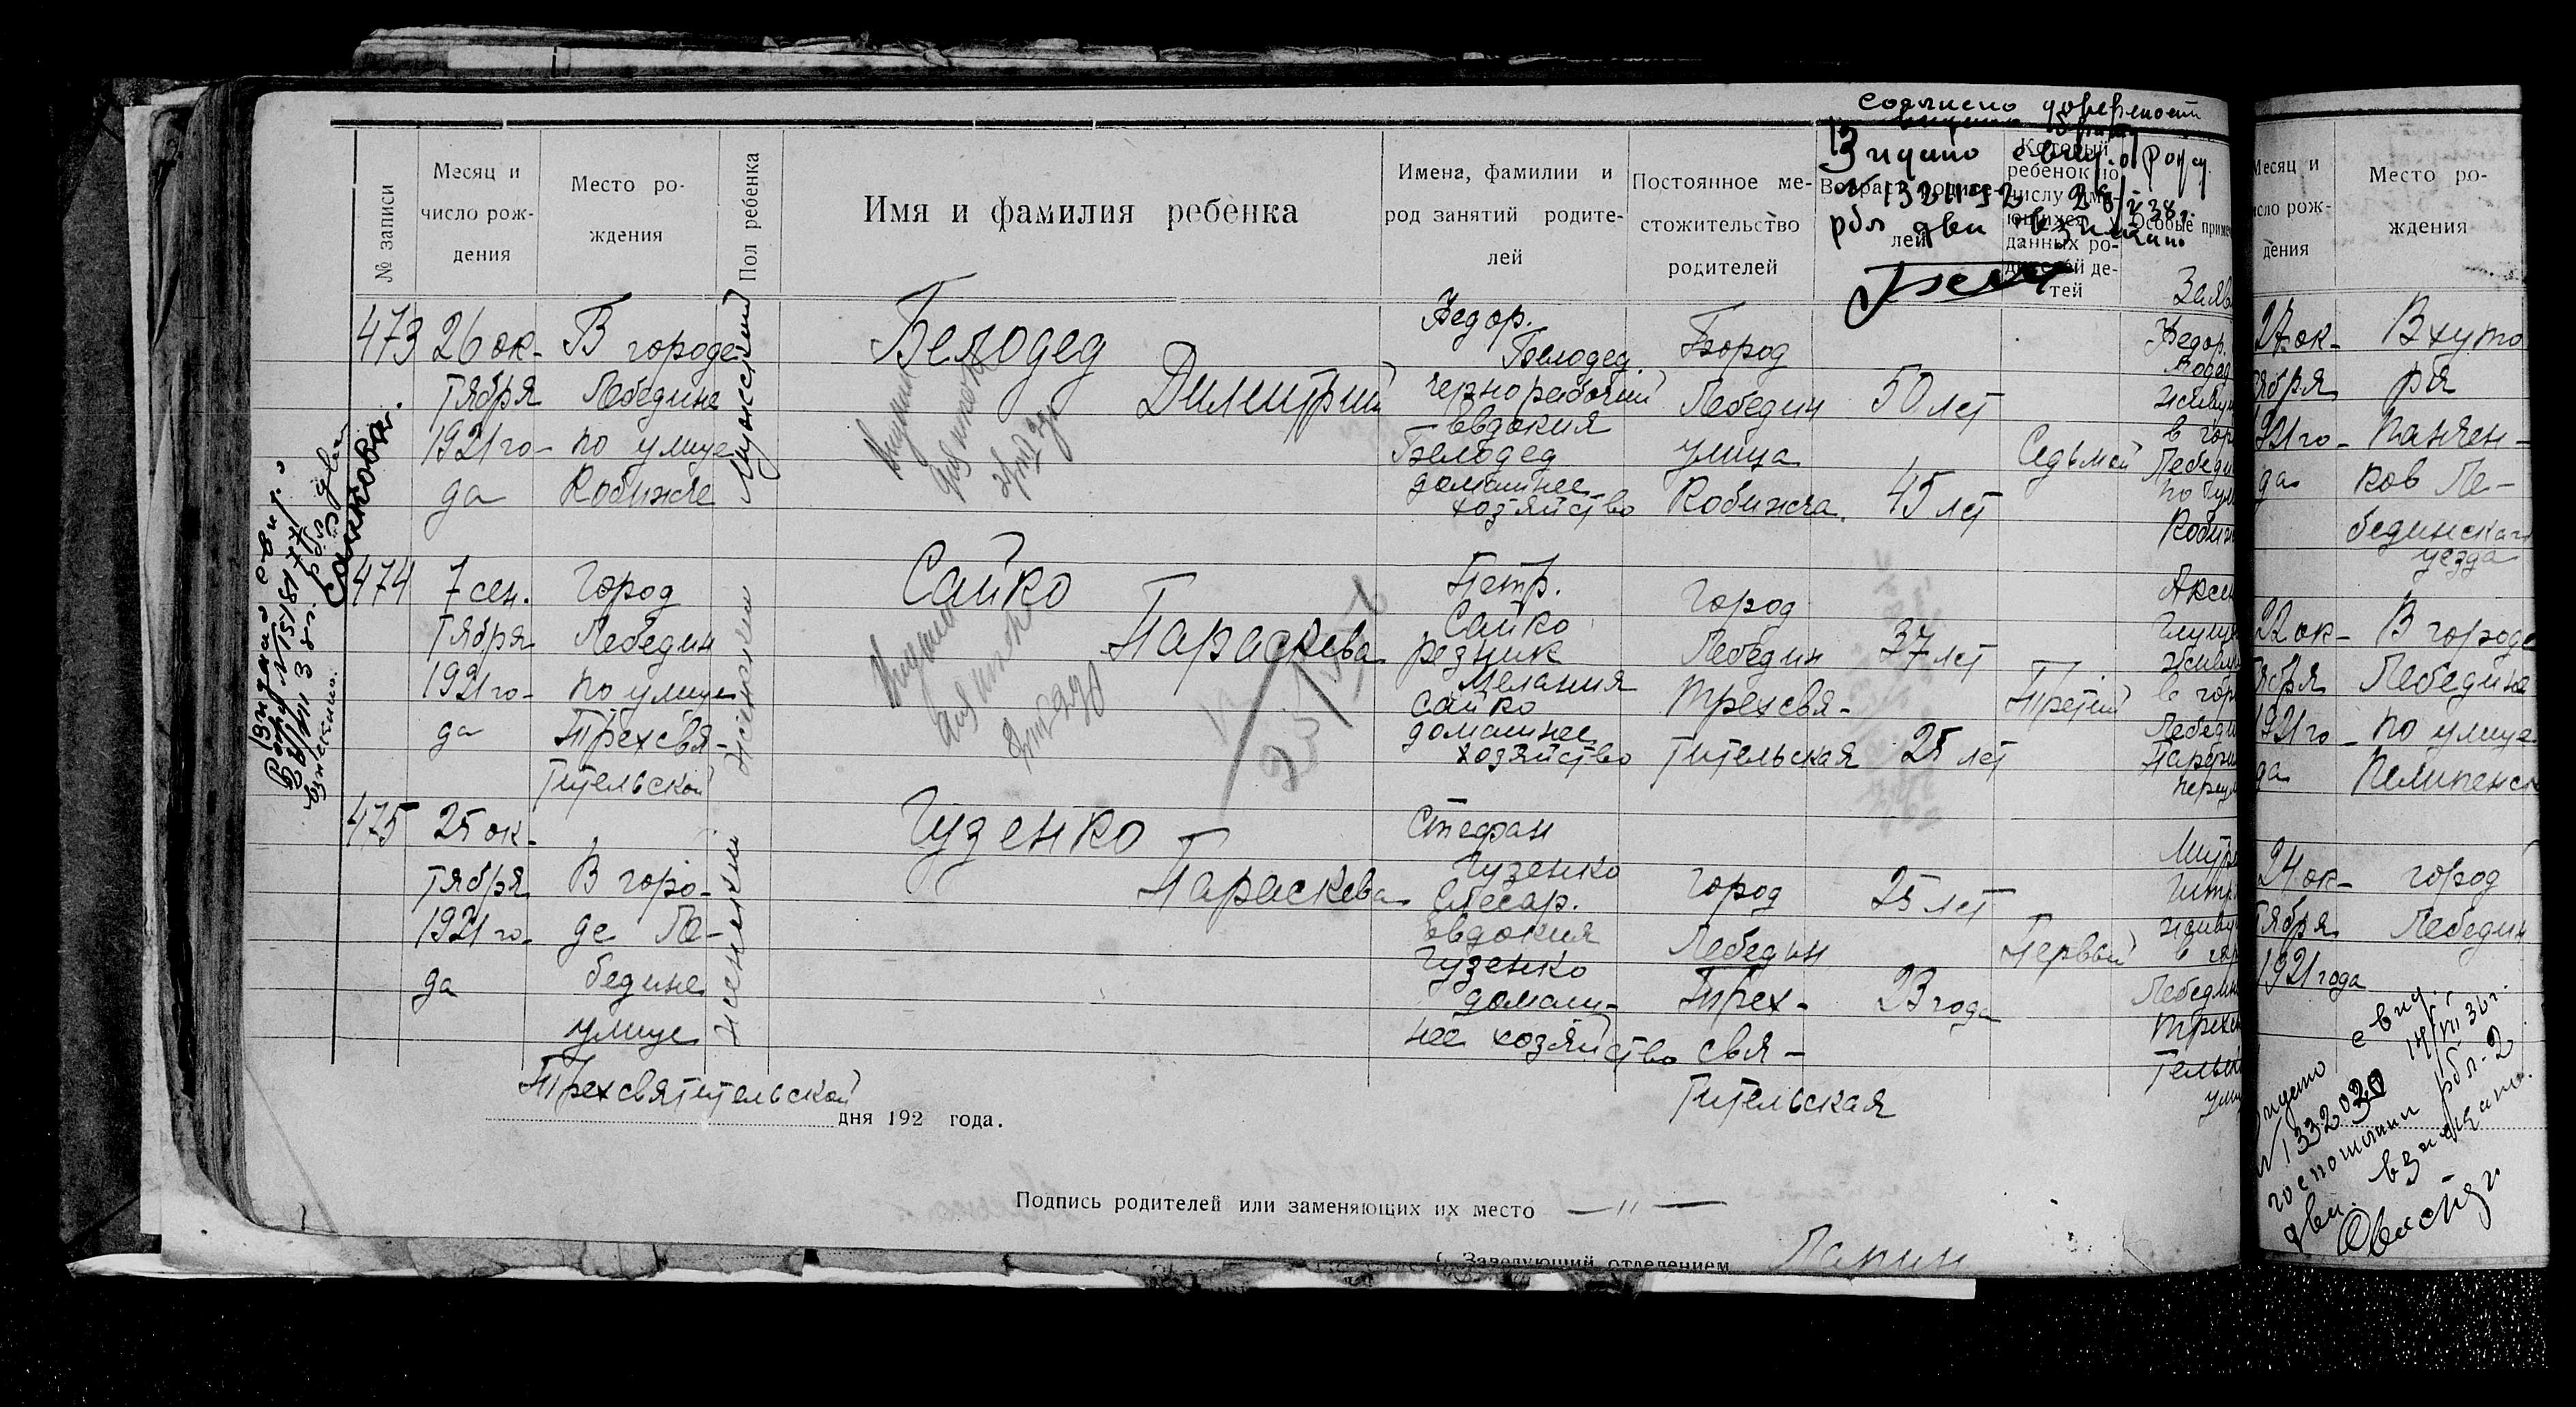 согласно доверености
Видано свид. о рожд.
№ 132492 28/V 38 г.
рбл два взискано.
№ записи
Месяц и
число рож-
дения
Место ро-
ждения
Пол ребенка
Имя и фамилия ребенка
Имена, фамилии и
род занятий родите-
лей
Постоянное ме-
стожительство
родителей
Возраст родите-
лей
Который
ребенок по
числу име-
ющихся у
данных ро-
дителей де-
тей
Особые приме
473
26 ок-
тября
1921 го-
да
В городе
Лебедине
по улице
Кобижче
мужеский
Белодед
Димитрий
Федор.
Белодед
чернорабочий
Евдокия
Белодед
домашнее
хозяйство
Город
Лебедин
улица
Кобижча.
50 лет
45 лет
Седьмой
Заяв
Федор.
Лодед
живущ
в гор
Лебеди
по ул
Кобиж
Видано свид. о
рожд № 151817
взискано.
474
7 сен.
тября
1921 го-
да
Город
Лебедин
по улице
Трехсвя-
тительской
женский
Сайко
Параскева
Петр.
Сайко
резник
Мелания
Сайко
домашнее
хозяйство
Город
Лебедин
Трехсвя-
тительская
37 лет
25 лет
Третий
Аксен
живу
в гор
Лебеди
475
25 ок-
тября
1921 го-
да
В горо-
де Ле-
бедине
улице
Трехсвятительской
женский
Гузенко
Параскева
Стефан
Гузенко
слесар.
Евдокия
Гузенко
домаш-
нее хозяйство
Город
Лебедин
Трех-
свя-
тительская
25 лет
23 года
Первый
живу
в гор
Лебедин
Трехсв
тельск
ули
дня 192 года.
Подпись родителей или заменяющих их место —〃—
Заведующий отделением
Месяц и
исло рож-
дения
Место ро-
ждения
27 ок-
тября
921 го-
да
В хуто
ре
Панчен-
ков Ле-
бединскаго
уезда
22 ок-
тября
1921 го-
да
В городе
Лебедине
по улице
Пелипенск
24 ок-
тября
1921 года
город
Лебедин
идано свид.
№ 133230 14/VII 36 г.
госпошлини рбл-2
два взискано.